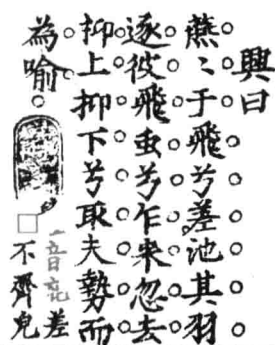 興曰
蕪〻于飛兮差池其羽
逐彼飛虫兮乍来忽去
抑上抑下兮取夫勢而
為喻
差
不齊皃